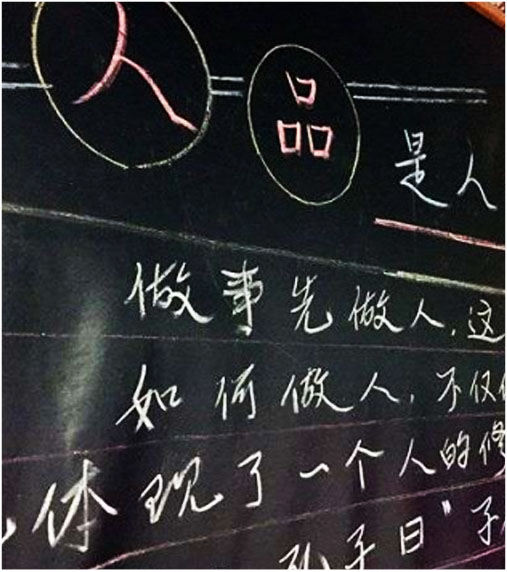 人品是人
做事先做人,这
如何做人,不仅
体现了一个人的修
孔子曰"子